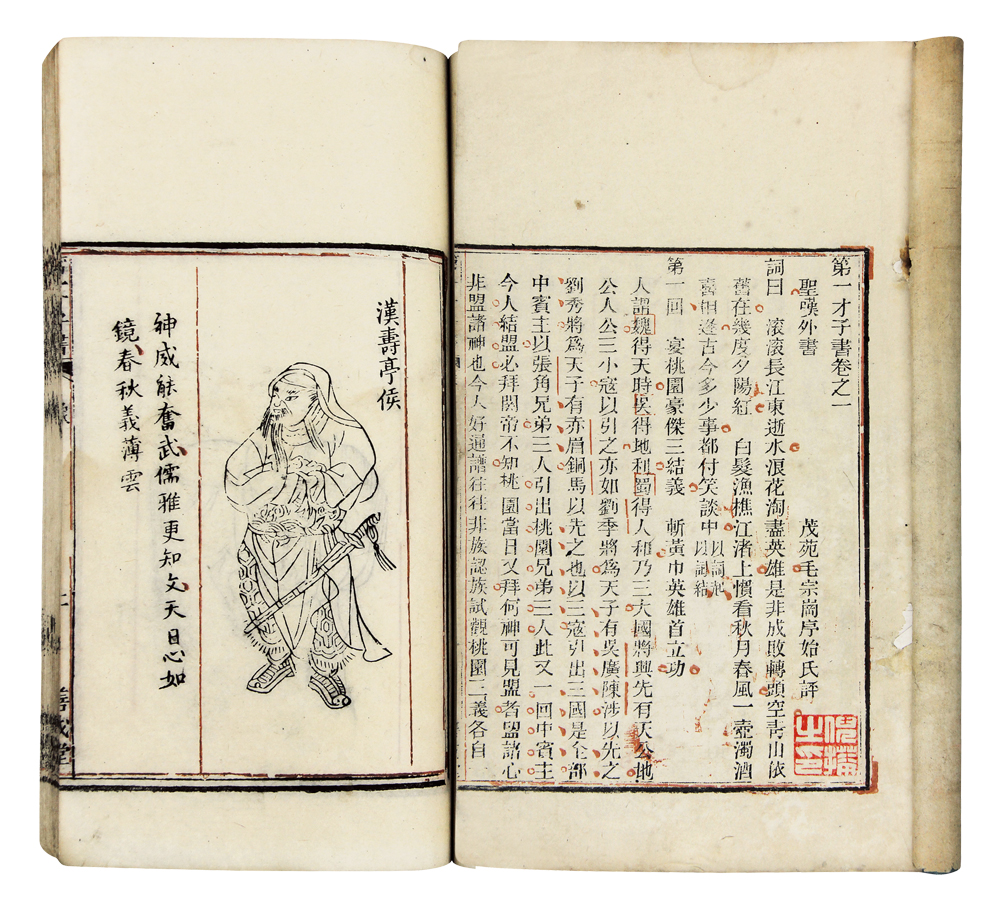 第一才子書卷之一
聖嘆外書 茂苑毛宗崗序始氏評
詞曰 滾滾長江東逝水浪花淘盡英雄是非成敗轉頭空靑山依
舊在幾度夕陽紅 白髮漁樵江渚上慣看秋月春風一壺濁酒
喜相逢古今多少事都付笑談中 以詞起以詞結
第一回 宴桃園豪傑三結義 斬黃巾英雄首立功
人謂魏得天時吳得地利蜀得人和乃三大國將興先有天公地
公人公三小寇以引之亦如劉季將爲天子有吳廣陳涉以先之
劉秀將爲天子有赤眉銅馬以先之也以三寇引出三國是全部
中賓主以張角兄弟三人引出桃園兄弟三人此又一回中賓主
今人結盟必拜關帝不知桃園當日又拜何神可見盟者盟諸心
非盟諸神也今人好通譜往往非族認族試觀桃園三義各自
漢壽亭侯
神威能奮武儒雅更知文天日心如
鏡春秋義薄雲
善成堂